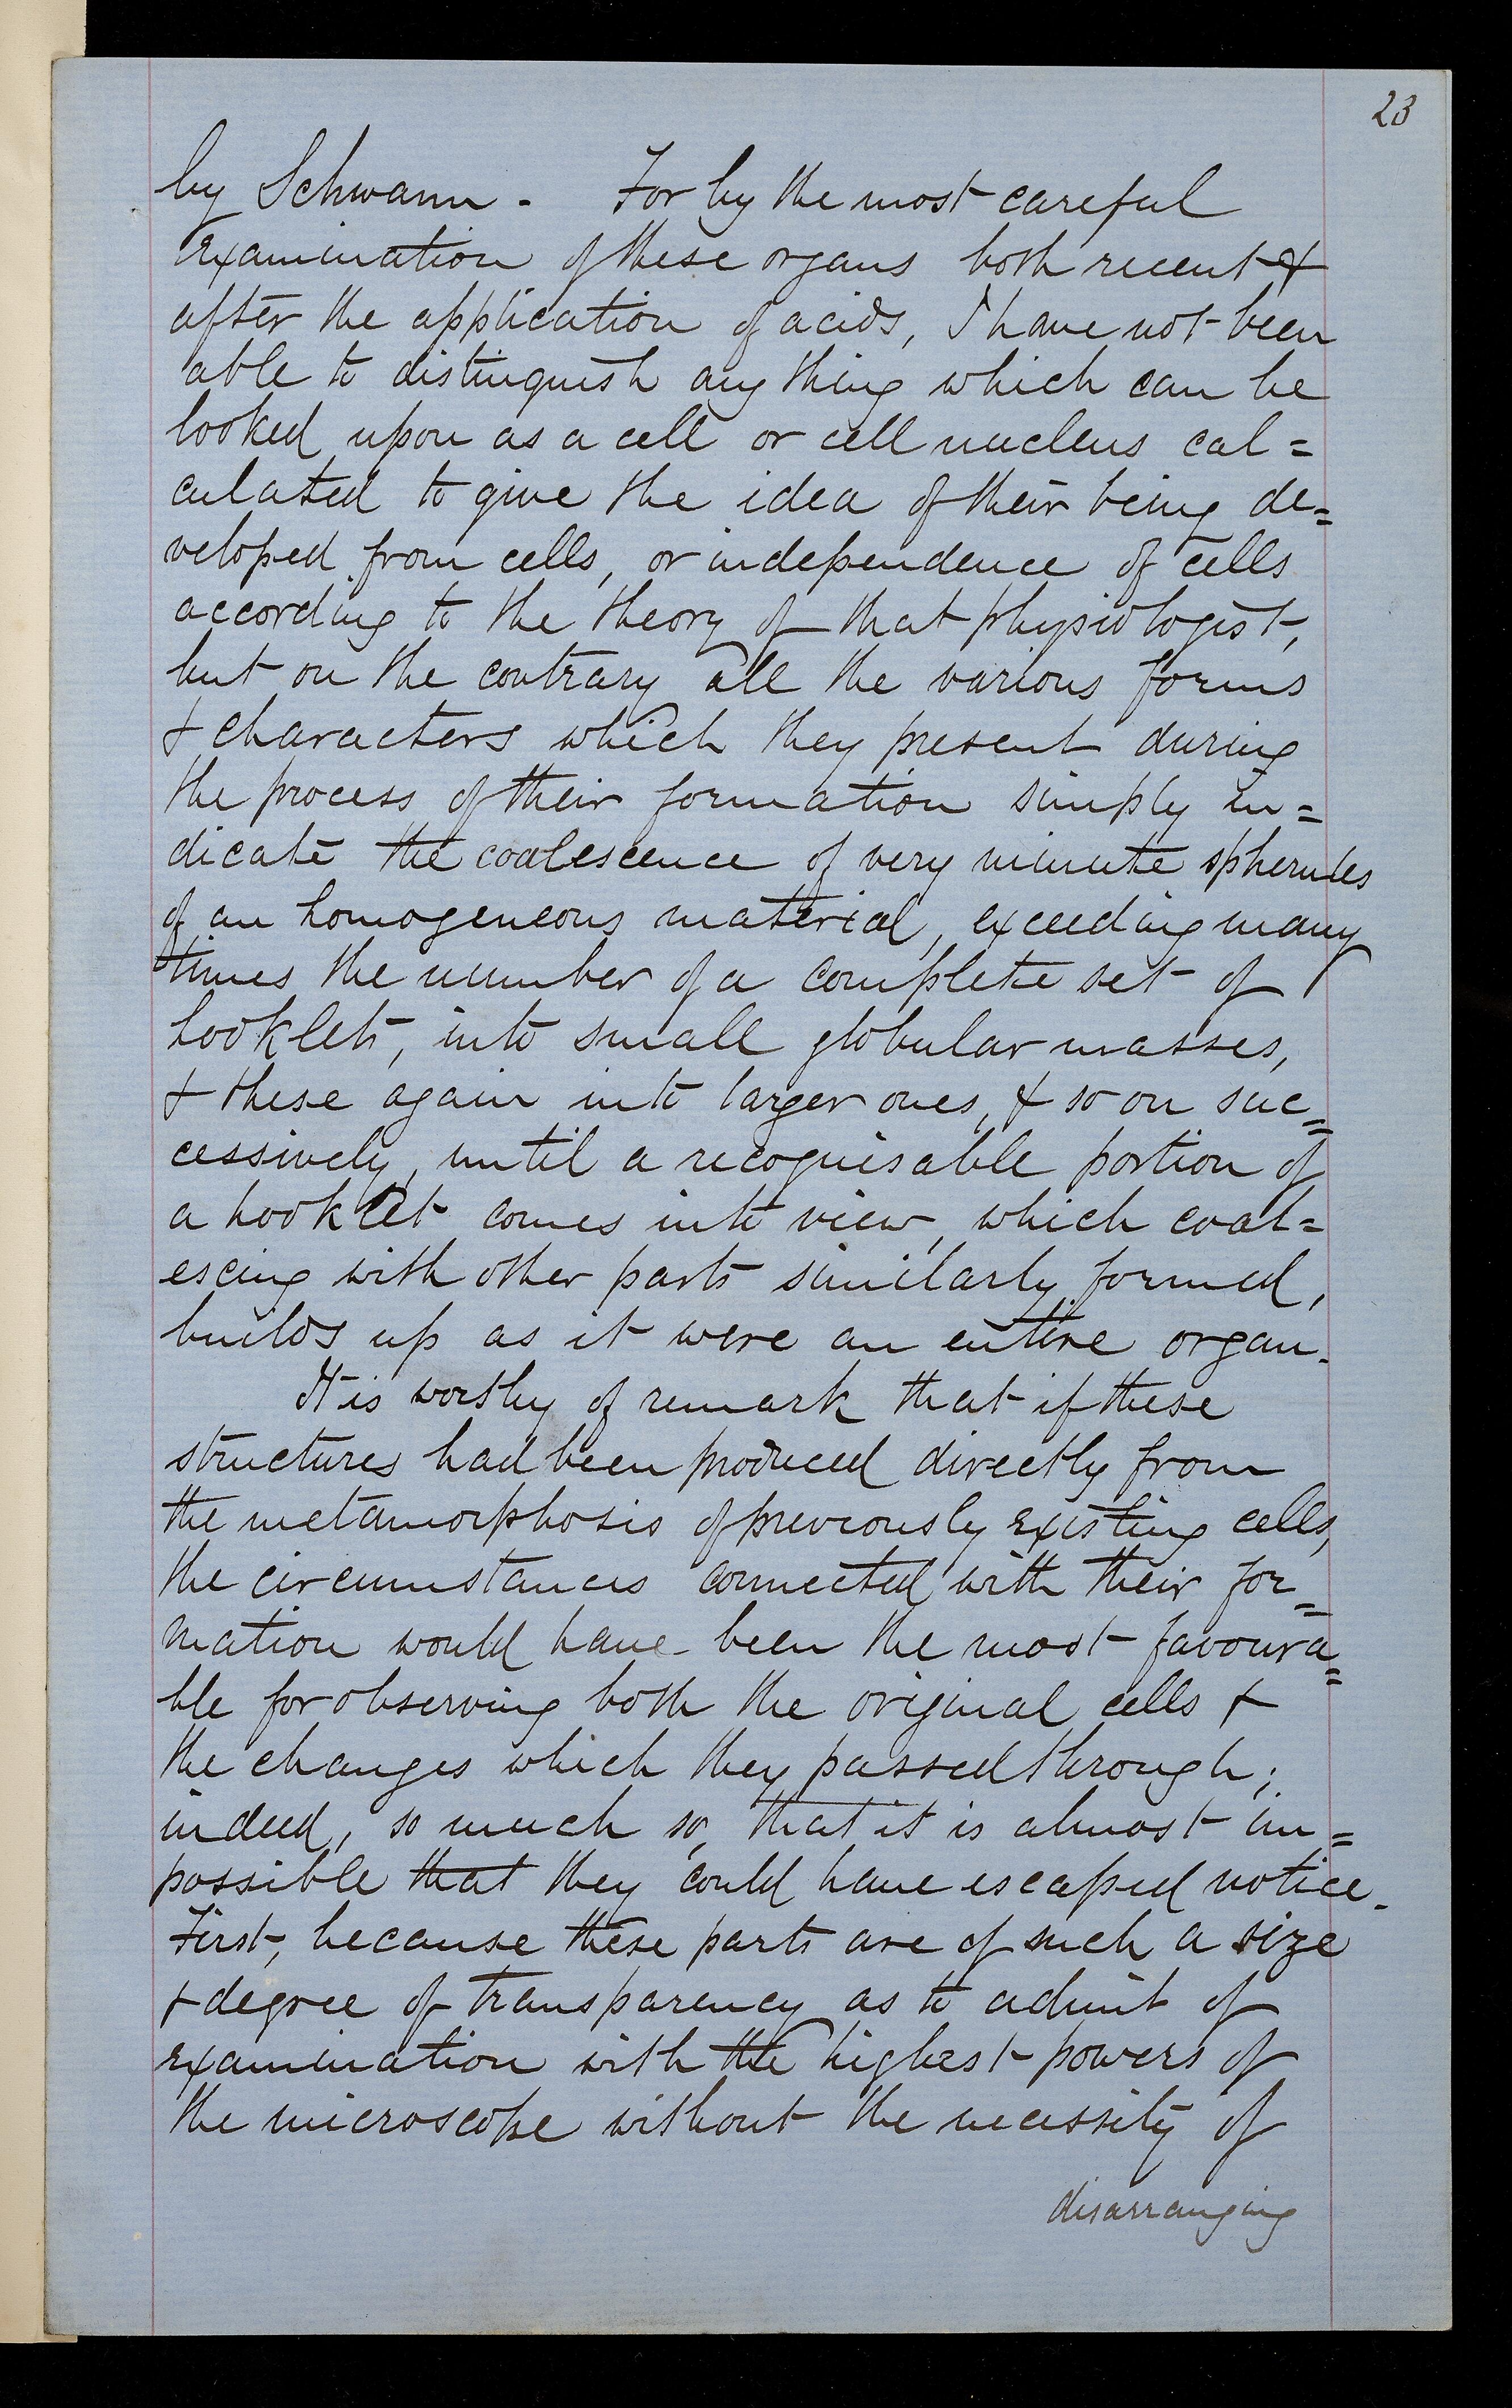 23
by Schwann. For by the most careful
examination of these organs both recent &
after the application of acids, I have not been
able to distinguish any thing which can be
looked upon as a cell or cell nucleus cal=
culated to give the idea of their being de=
veloped from cells, or independence of cells
according to the theory of that physiologist,
but on the contrary all the various forms
& characters which they present during
the process of their formation simply in=
dicate the coalescence of very minute spherules
of an homogeneous material, exceeding many
times the number of a complete set of
hooklets, into small globular masses,
& these again into larger ones, & so on suc=
cessively, until a recognisable portion of
a hooklet comes into view, which coal=
escing with other parts similarly formed,
builds up as it were an entire organ.
It is worthy of remark that if these
structures had been produced directly from
the metamorphosis of previously existing cells,
the circumstances connected with their for=
mation would have been the most favoura=
ble for observing both the original cells &
the changes which they passed through;
indeed, so much so, that it is almost im=
possible that they could have escaped notice.
First, because these parts are of such a size
& degree of transparency as to admit of
examination with the highest powers of
the microscope without the necessity of
disarranging